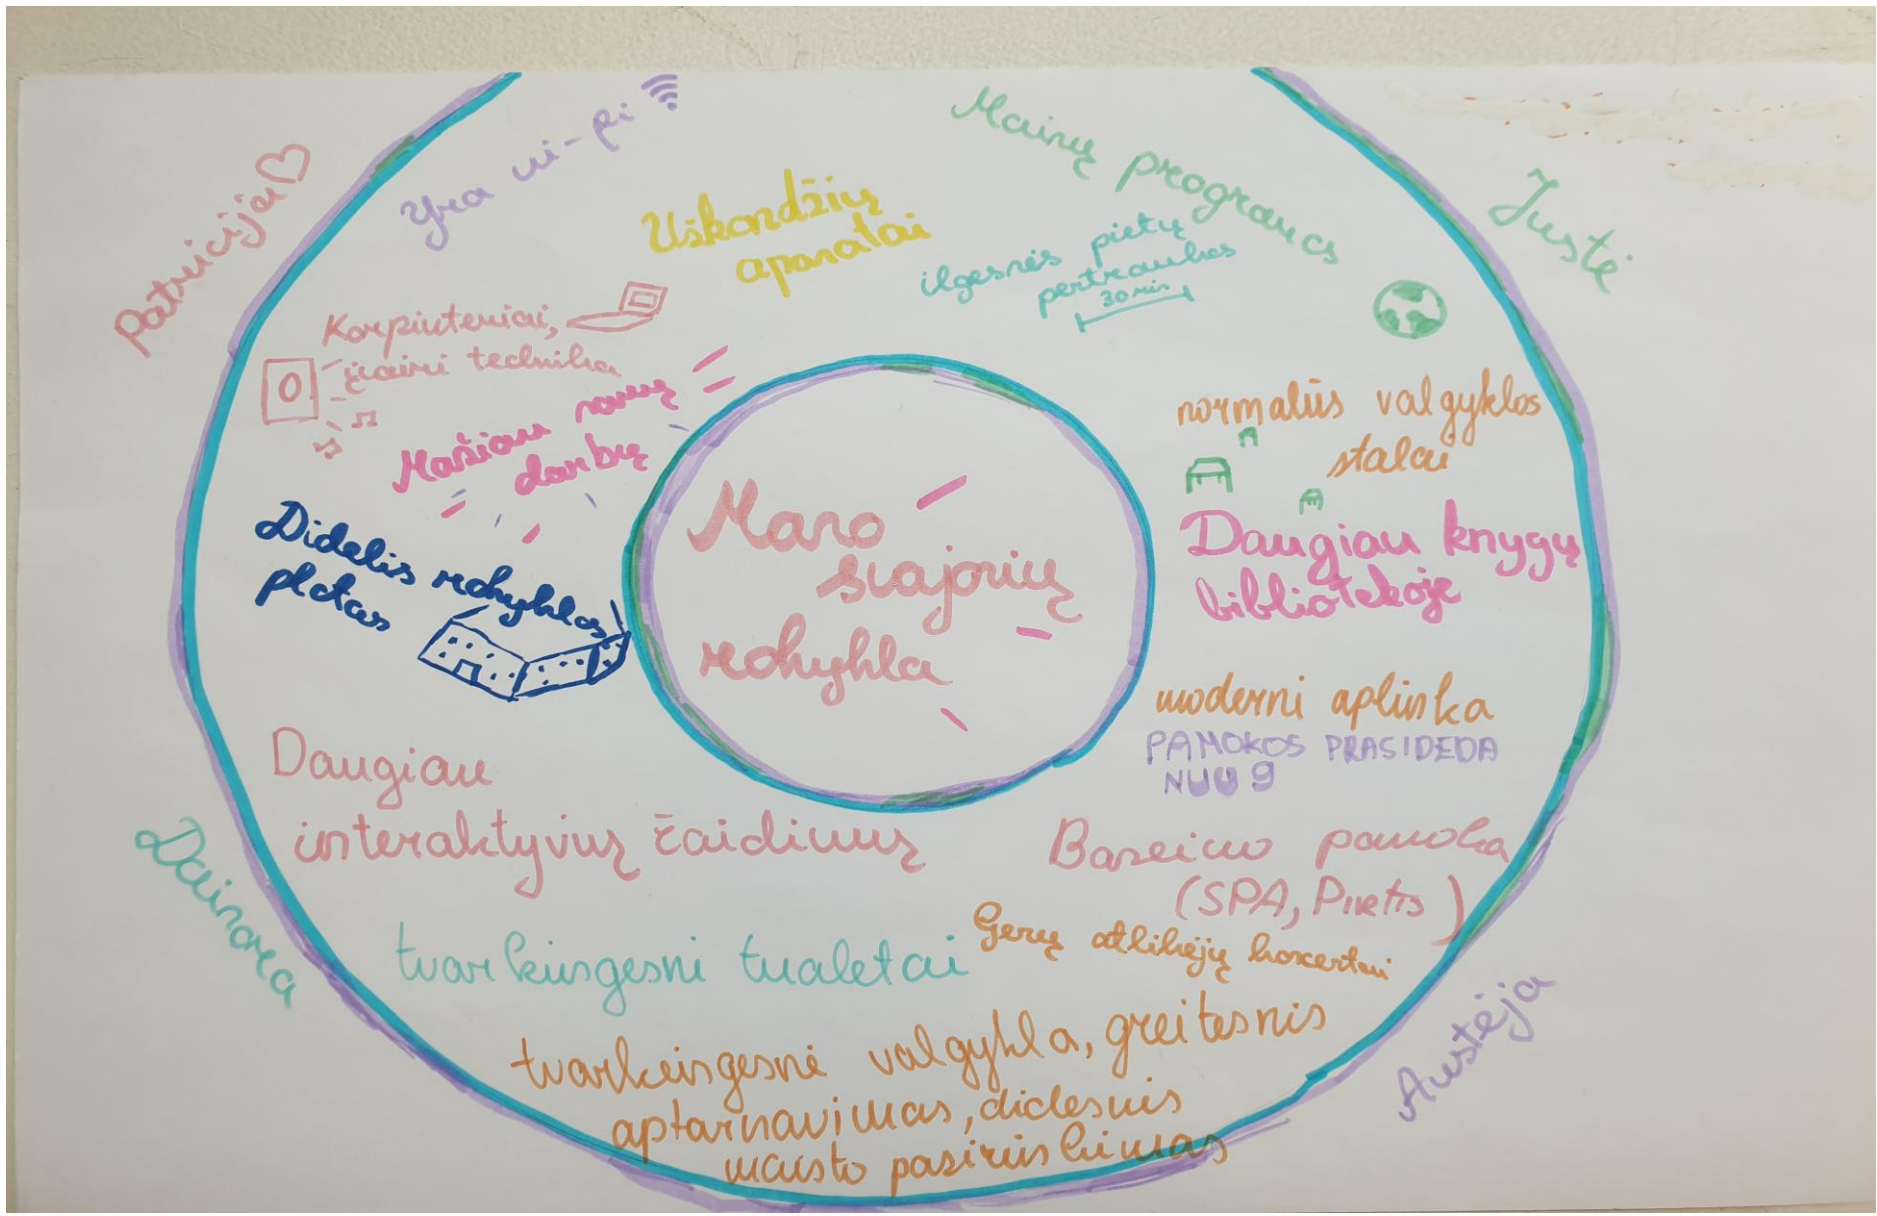 Patricija
Yra wi-fi
Mainų programos
Justė
Užkandžių
aparatai
ilgesnės pietų
pertraukos
30 min
Kompiuteriai,
įvairi technika
Mažiau namų
darbų
normalūs valgyklos
stalai
Didelis mokyklos
plotas
Mano
svajonių
mokykla
Daugiau knygų
bibliotekoje
moderni aplinka
PAMOKOS PRASIDEDA
NUO 9
Daugiau
interaktyvių žaidimų
Baseino pamoka
(SPA, Pirtis)
Dainora
tvarkingesni tualetai
Gerų atlikėjų koncertai
Austėja
tvarkingesnė valgykla, greitesnis
aptarnavimas, didesnis
maisto pasirinkimas